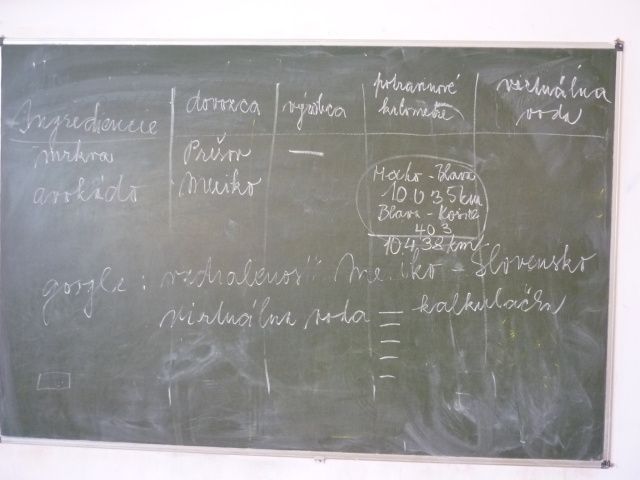 Ingrediencie dovozca výrobca potravinové kilometre virtuálna voda
mrkva Prešov —
avokádo Mexiko
Mexiko - Blava
10 035 km
Blava - Košice
403
10 438 km
google : vzdialenosť Mexiko - Slovensko
virtuálna voda — kalkulačka